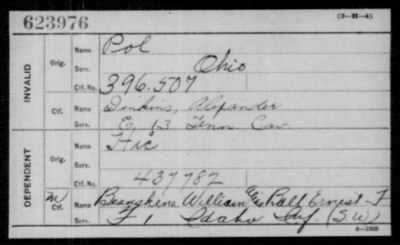 623976
(3-III-4)
INVALID
Orig.
Name Pol
Serv. Ohio
Ctf. No. 396.507
Ctf.
Name Dinkins, Alexander
Serv. E, 13 Tenn Cav
DEPENDENT
Orig.
Name Hic
Serv.
Ctf. No. 437782
M Ctf.
Name William alias Ball Ernest F
Serv. F, 1 Idaho Inf (S W)